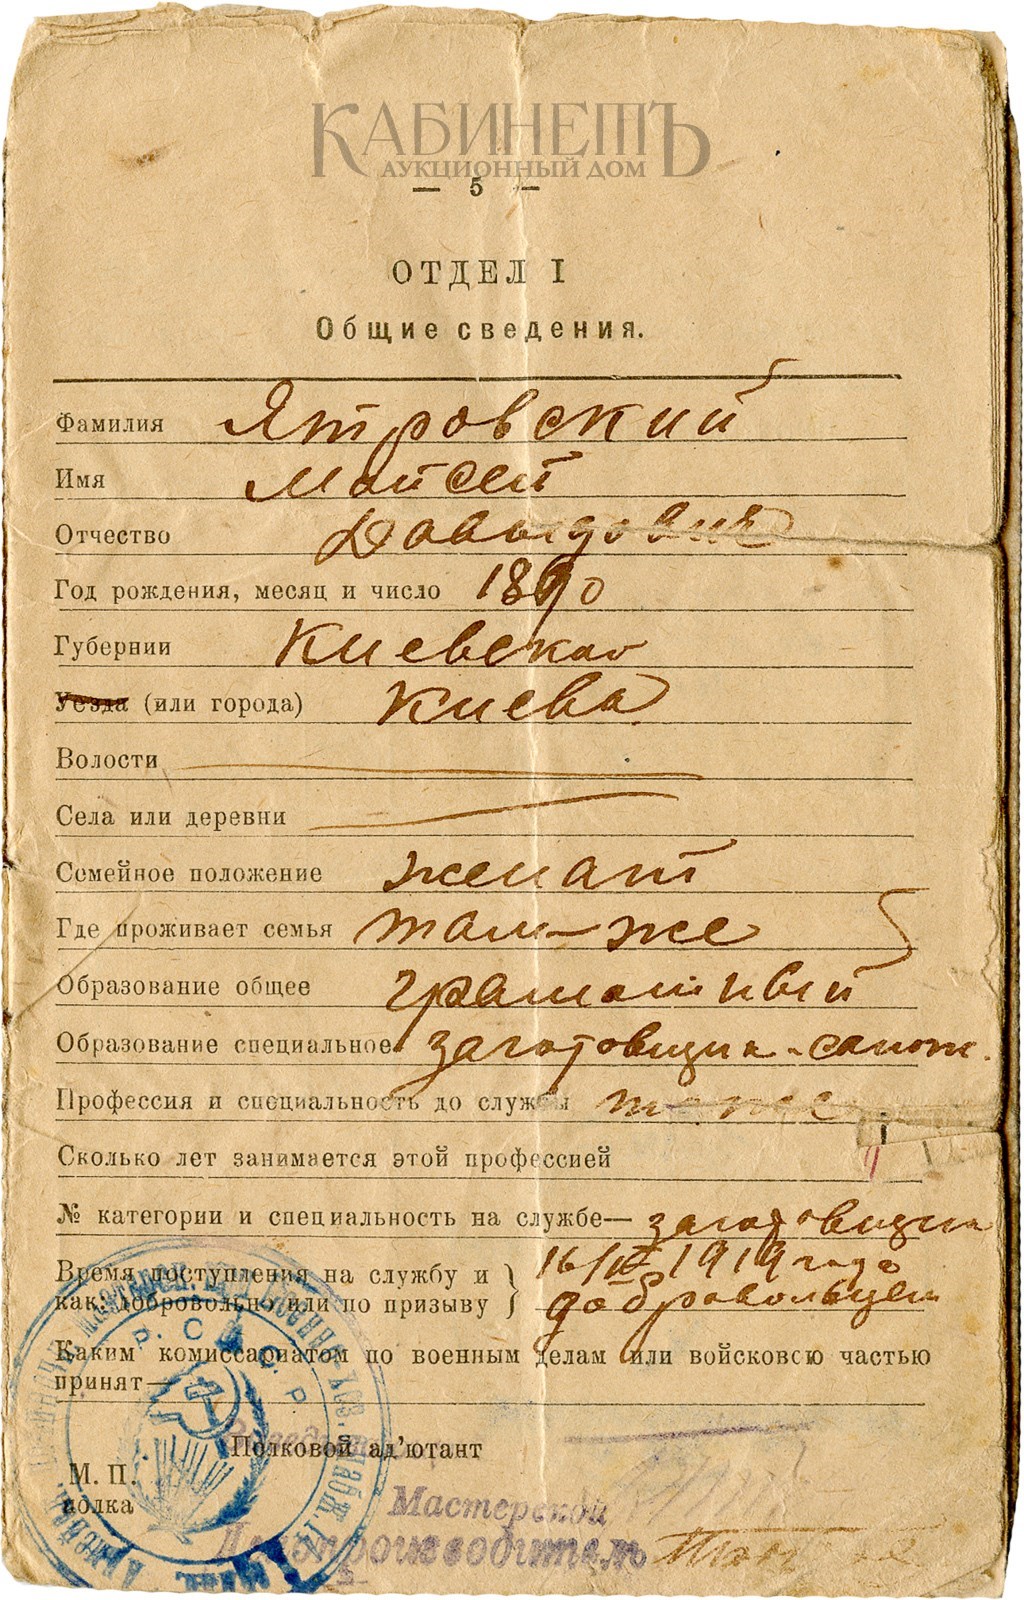 КАБИНЕТЪ
АУКЦИОННЫЙ ДОМ
— 5 —
ОТДЕЛ I
Общие сведения.
Фамилия Ятровский
Имя Мойсей
Отчество Давыдович
Год рождения, месяц и число 1890
Губернии Киевская
Уезда (или города) Киева
Волости
Села или деревни
Семейное положение женат
Где проживает семья там-же
Образование общее грамотный
Образование специальное заготовщик-сапож.
Профессия и специальность до службы тоже
Сколько лет занимается этой профессией
№ категории и специальность на службе— заготовщик
Время поступления на службу и 16/IV 1919 года
как: добровольно или по призыву добровольцем
Каким комиссариатом по военным делам или войсковою частью
принят—
Р. С. Ф. С. Р.
Полковой ад'ютант
М. П.
полка
Мастерской
Делопроизводитель